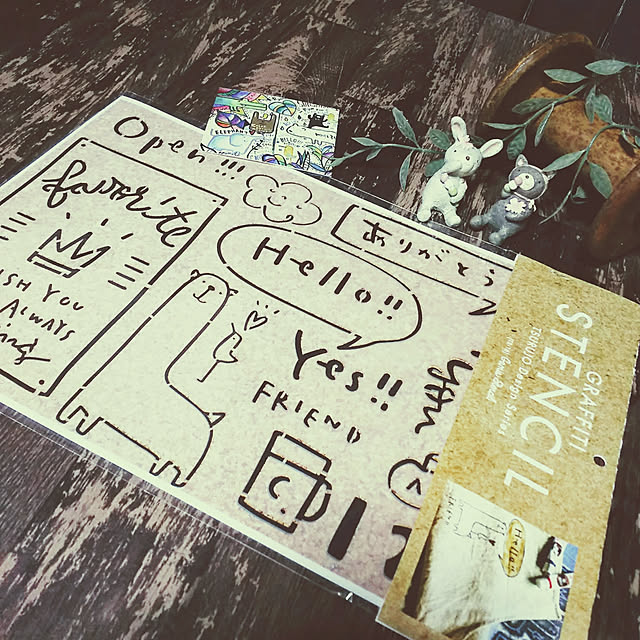 Open!!!
favorite
ISH YOU
ALWAYS
ありがとう
Hello!!
Yes!!
FRIEND
1 2
GRAFFITI
STENCIL
TSURUO DESIGN Series